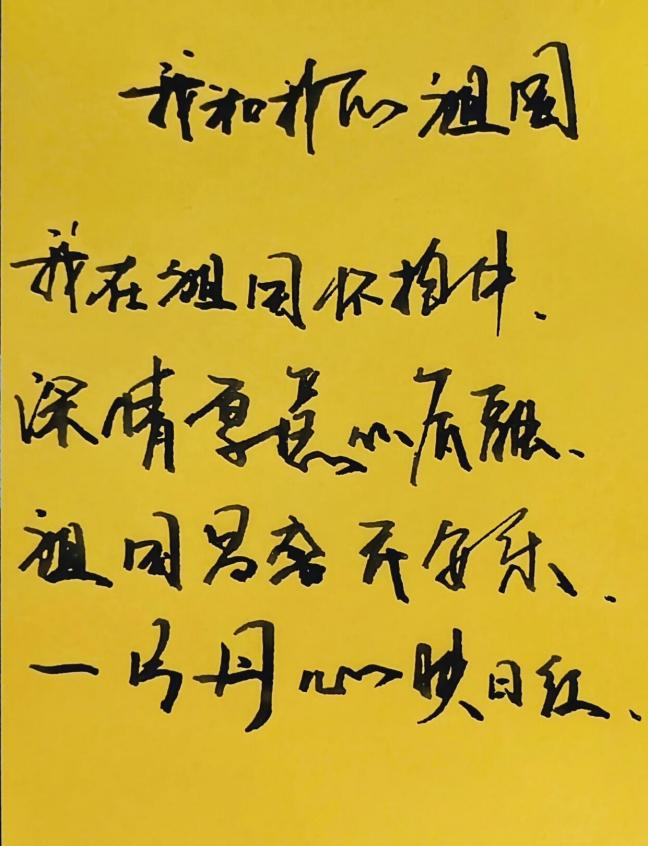 我和我的祖国
我在祖国怀抱中、
深情厚意心底融、
祖国昌盛安乐、
一片丹心映日红、